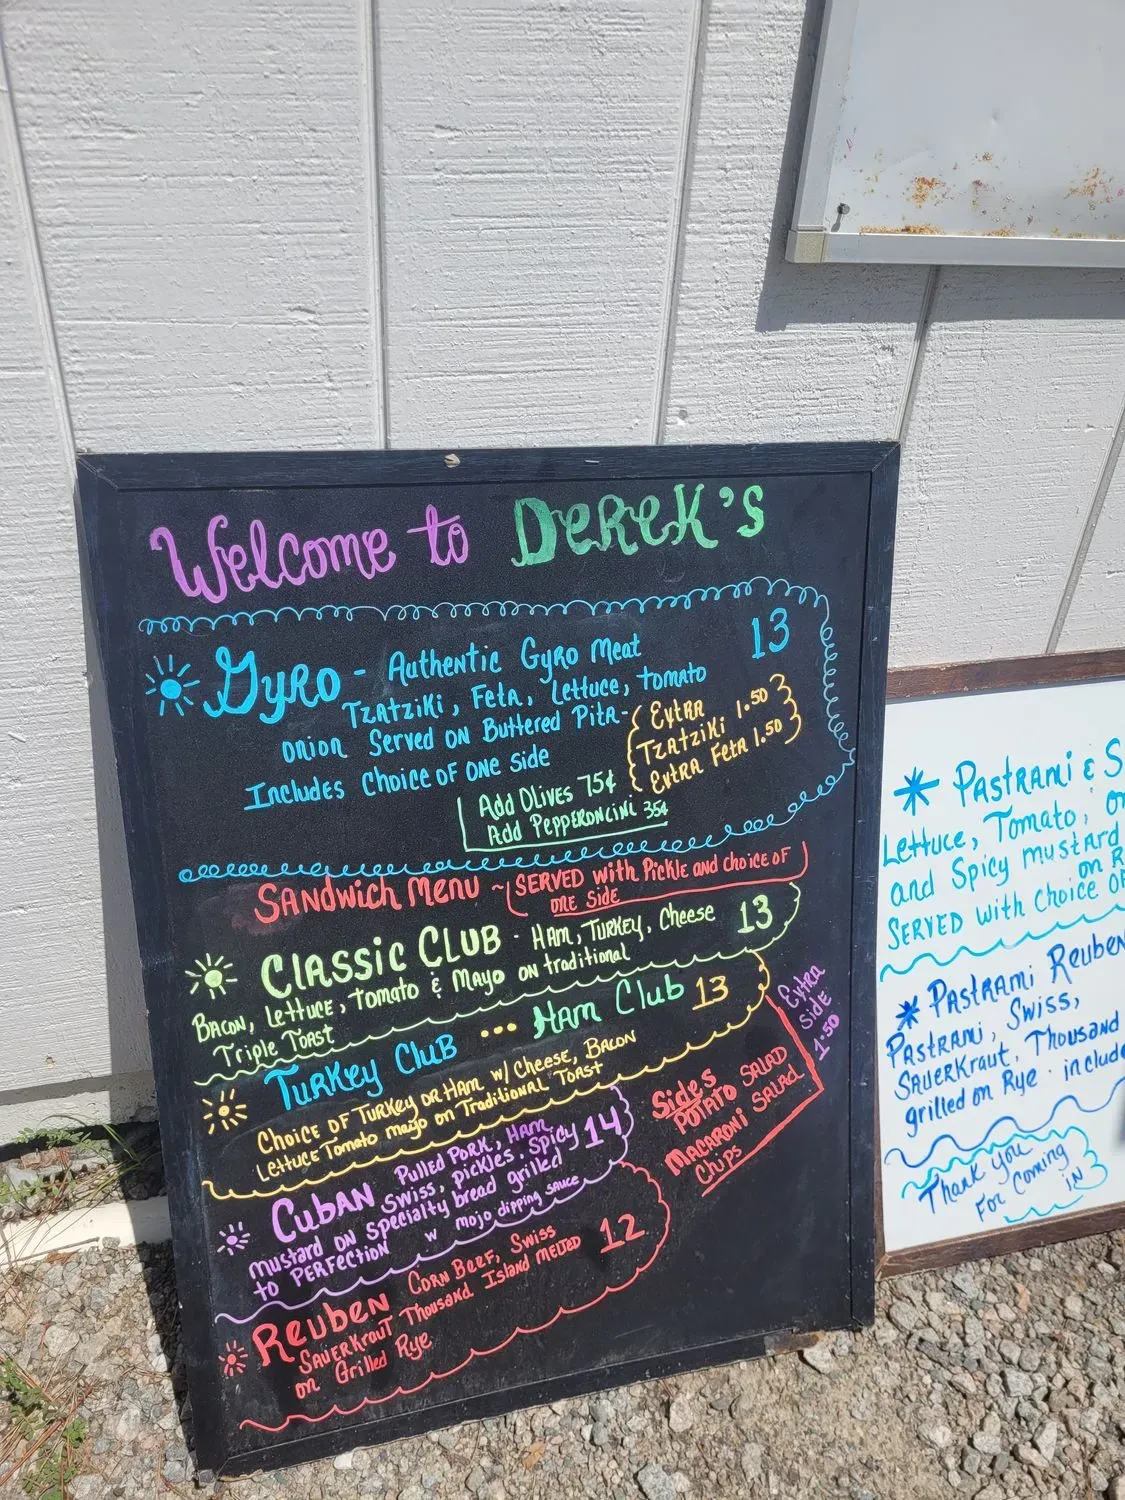 Welcome to Derek's
Gyro - Authentic Gyro Meat 13
Tzatziki, Feta, Lettuce, tomato
onion Served on Buttered Pita -
Includes Choice of one side
Extra
Tzatziki 1.50
Extra Feta 1.50
Add Olives 75¢
Add Pepperoncini 35¢
Sandwich Menu ~ Served with Pickle and choice of
one side
Classic Club - Ham, Turkey, Cheese 13
Bacon, Lettuce, Tomato & Mayo on traditional
Triple Toast
Turkey Club ... Ham Club 13
Choice of Turkey or Ham w/ Cheese, Bacon
Lettuce Tomato mayo on Traditional Toast
Cuban Pulled Pork, Ham 14
Swiss, pickles, spicy
mustard on specialty bread grilled
to perfection w mojo dipping sauce
Reuben Corn Beef, Swiss 12
Sauerkraut Thousand Island melted
on Grilled Rye
Extra
Side
1.50
Sides
Potato Salad
Macaroni Salad
Chips
Pastrami & S
Lettuce, Tomato, on
and Spicy mustard
on R
Served with Choice of
Pastrami Reuben
Pastrami, Swiss,
Sauerkraut, Thousand
grilled on Rye · include
Thank you
For Coming
in